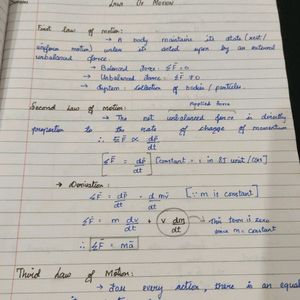 Law Of Motion
First law of motion:
→ A body maintains its state (rest/
uniform motion) unless its acted upon by an external
unbalanced force.
→ Balanced force: ΣF⃗ = 0
→ Unbalanced force: ΣF⃗ ≠ 0
→ System: Collection of bodies / particles.
Applied force
Second Law of motion:
→ The net unbalanced force is directly
proportion to the rate of change of momentum
∴ ΣF⃗ ∝ dp⃗/dt
ΣF⃗ = dp⃗/dt [Constant = 1 in SI unit /
→ Derivation:
ΣF⃗ = dp⃗/dt = d mv⃗/dt [∵ m is constant]
ΣF⃗ = m dv/dt + v dm/dt → This term is zero
since m = constant
∴ ΣF⃗ = ma⃗
Third Law of Motion:
→ For every action, there is an equal